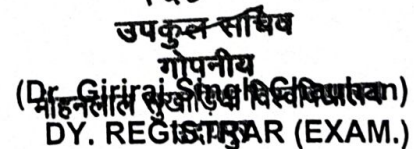 उपकुल सचिव
गोपनीय
(Dr. Giriraj Singh Chauhan)
मोहनलाल सुखाड़िया विश्वविद्यालय
DY. REGISTRAR (EXAM.)
उदयपुर